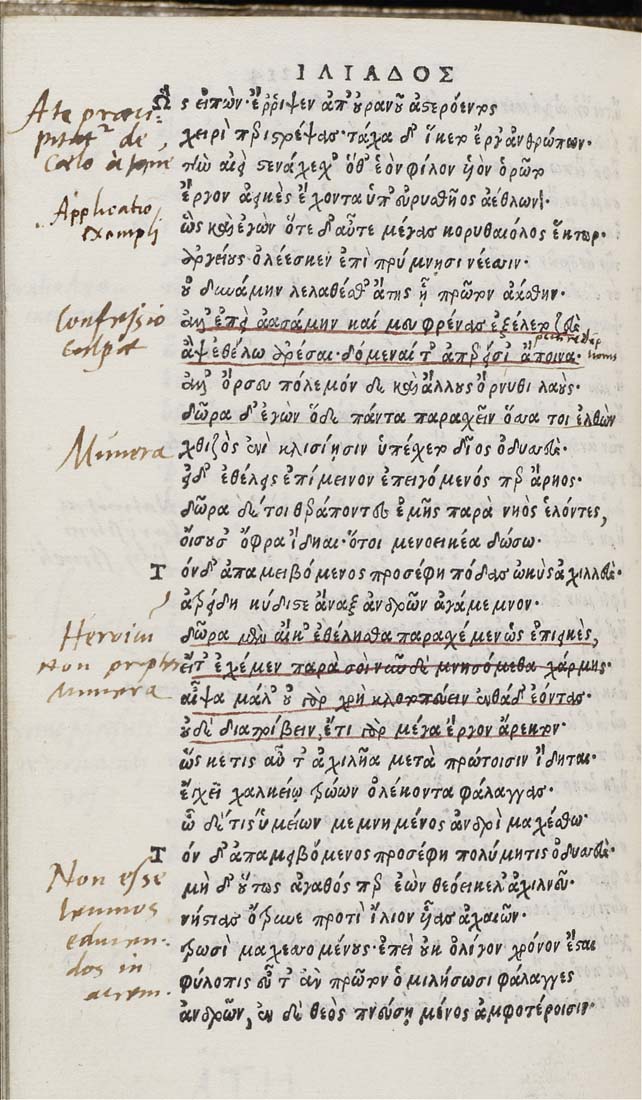 ΙΛΙΑΔΟΣ
Ὣς εἰπὼν ἔρριψεν ἀπ' οὐρανοῦ ἀστερόεντος
χειρὶ περιστρέψας· τάχα δ' ἵκετο ἔργ' ἀνθρώπων.
τὴν αἰεὶ στενάχεχ' ὅθ' ἑὸν φίλον υἱὸν ὁρῷτο
ἔργον ἀεικὲς ἔχοντα ὑπ' εὐρυσθῆος ἀέθλων·
ὣς καὶ ἐγὼν ὅτε δ' αὖτε μέγας κορυθαιόλος ἕκτωρ·
ἀργείους ὀλέεσκεν ἐπὶ πρύμνησι νέεσσιν·
οὐ δυνάμην λελαθέσθ' ἄτης ᾗ πρῶτον ἀάσθην·
ἀλλ' ἐπεὶ ἀασάμην καί μευ φρένας ἐξέλετο ζεὺς
ἂψ ἐθέλω ἀρέσαι· δόμεναί τ' ἀπερείσι' ἄποινα·
ἀλλ' ὄρσευ πόλεμόνδε καὶ ἄλλους ὄρνυθι λαούς·
δῶρα δ' ἐγὼν ὅδε πάντα παρασχεῖν ὅσσα τοι ἐλθὼν
χθιζὸς ἐνὶ κλισίῃσιν ὑπέσχετο δῖος ὀδυσσεύς·
εἰ δ' ἐθέλεις ἐπίμεινον ἐπειγόμενός περ ἄρηος·
δῶρα δέ τοι θεράποντες ἐμῆς παρὰ νηὸς ἑλόντες,
οἴσουσ' ὄφρα ἴδηαι· ὅτοι μενοεικέα δώσω·
Τόνδ' ἀπαμειβόμενος προσέφη πόδας ὠκὺς ἀχιλλεύς·
ἀτρείδη κύδιστε ἄναξ ἀνδρῶν ἀγάμεμνον·
δῶρα μὲν αἴκ' ἐθέλησθα παρασχέμεν ὡς ἐπιεικὲς,
εἴτ' ἐχέμεν παρὰ σοὶ νῦν δὲ μνησόμεθα χάρμης·
αἶψα μάλ' οὐ γὰρ χρὴ κλοτοπεύειν ἐνθάδ' ἐόντας·
οὐδὲ διατρίβειν, ἔτι γὰρ μέγα ἔργον ἄρεκτον·
ὥς κέ τις αὖ τ' ἀχιλῆα μετὰ πρώτοισιν ἴδηται·
ἔγχεϊ χαλκείῳ τρώων ὀλέκοντα φάλαγγας·
ὧδέ τις ὑμείων μεμνημένος ἀνδρὶ μαχέσθω·
Τόν δ' ἀπαμειβόμενος προσέφη πολύμητις ὀδυσσεύς·
μὴ δ' οὕτως ἀγαθός περ ἐὼν θεοείκελ' ἀχιλλεῦ·
νήστιας ὄτρυνε προτὶ ἴλιον υἷας ἀχαιῶν·
τρωσὶ μαχεσομένους· ἐπεὶ οὐκ ὀλίγον χρόνον ἔσται
φύλοπις εὖτ' ἂν πρῶτον ὁμιλήσωσι φάλαγγες
ἀνδρῶν, ἐν δὲ θεὸς πνεύσῃ μένος ἀμφοτέροισιν·
Ate praeci-
pitatur de
Coelo a Jove
Applicatio
exempli
Confessio
culpae
Munera
Heroicum
non propter
munera
Non esse
ieiunos
educen-
dos in
aciem.